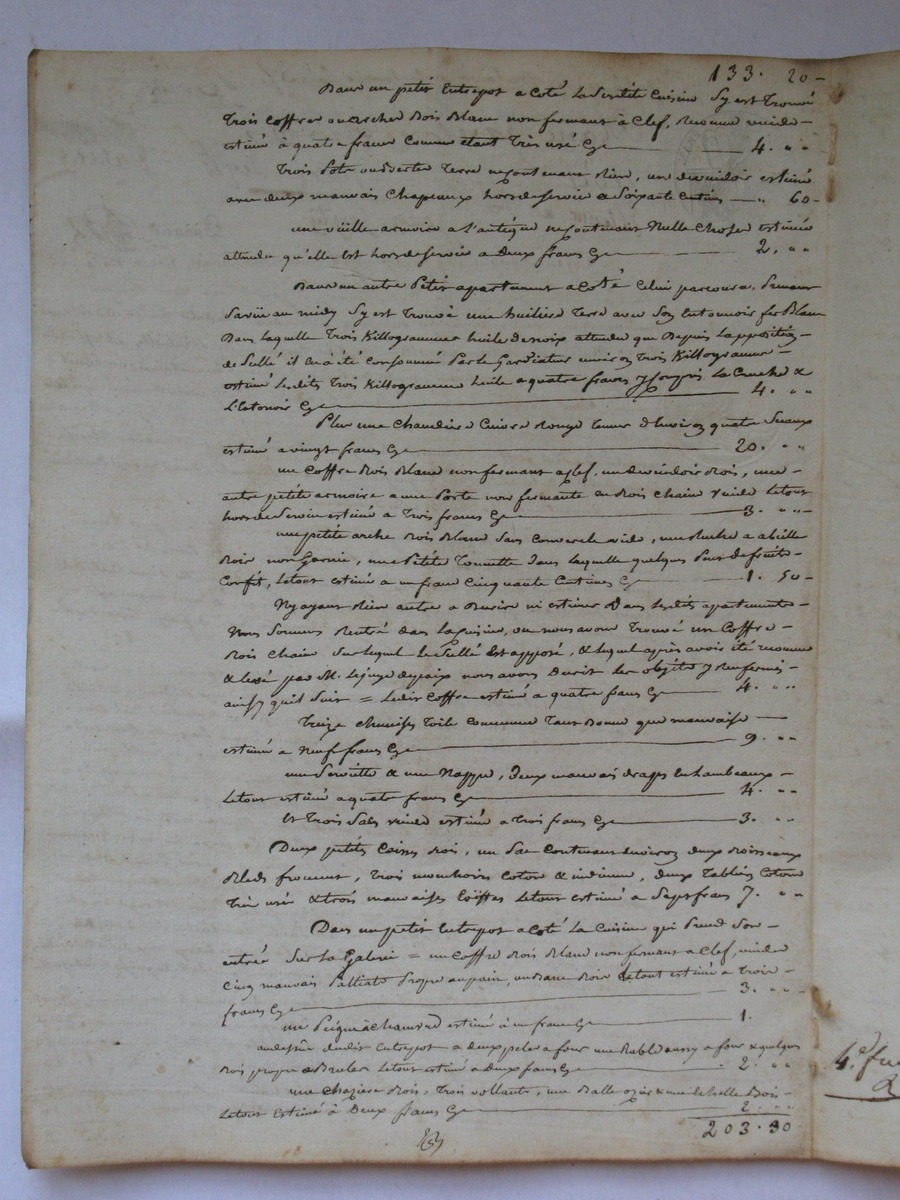 133. 20 -
Dans un petit Entrepot a Coté La Susdite Cuisine Sy est Trouvé
Trois Coffres ou arches Bois Blanc non fermant à Clef, Reconnu vuides -
estimé à quatre francs comme etant Très usé Cy 4. " "
Trois Pots ou deverter Terre ne contenant Rien, un devuidoir estimé
avec deux mauvais Chapeaux hors de service a Soixante Centimes " 60 -
une vieille armoire a L'antique ne contenant Nulle Choses estimée
attendu qu'elle Est hors de service a Deux francs Cy 2. " "
Dans un autre Petit apartement a Coté Celui parcouru, Prenant
Sa vüe au midy Sy est Trouvé une huiliere Terre avec Son Entonnoir fer Blanc
Dans Laquelle Trois Killogrammes huile de noix attendu que Depuis L'apposition
de Scellé il en a été Consommé Par le Gardiateur environ Trois Killogrammes -
estimé Lesdits Trois Killogrammes huile a quatre francs y Compris La Cruche &
L'Entonoir Cy 4. " "
Plus une Chaudiere Cuivre Rouge Tenue d'Environ quatre Seaux
estimé a vingt francs Cy 20. " "
un Coffre Bois Blanc non fermant a Clef, un devuidoir Bois, une
autre petite armoire a une Porte non fermante en Bois Chaine vuide Letout
hors de Service estimé a Trois francs Cy 3. " "
une petite arche Bois Blanc Sans Couvercle vuide, une Ruche a abeille
Bois non Garnie, une Petite Tounette Dans Laquelle quelques Peu de fruits -
Confit, Letout estimé a un franc Cinquante Centimes Cy 1. 50 -
N'y ayant Rien autre a Decrire ni estimer Dans Lesdits apartements -
Nous Sommes Rentré dans La Cuisine, ou nous avons Trouvé un Coffre -
Bois Chaine Sur lequel le Scellé Est apposé, & lequel après avoir été reconnu
& levé par M. Le juge de paix nous avons Decrit Les objets y Renfermés -
ainsy quil Suit = Ledit Coffre estimé a quatre francs Cy 4. " "
Treize chemises Toile Commune Tant Bonne que mauvaise
estimé a Neuf francs Cy 9. " "
une Serviette & une Nappe, Deux mauvais draps En Lambeaux -
Letout estimé a quatre francs Cy 4. " "
Et Trois Sacs vuide estimé a Trois francs Cy 3. " "
Deux petites Caisses Bois, un Sac Contenant Environ deux Boisseaux
Bleds froment, Trois mouchoirs Coton & indienne, deux Tabliers Cotone
Très usé & trois mauvaises Coiffes Letout estimé a Sept francs 7. " "
Dans un petit Entrepot a Coté La Cuisine qui Prend Son
entrée Sur La Galerie = un Coffre Bois Blanc non fermant a Clef, vuide
Cinq mauvais Palliats Propre au pain, un Banc Bois Letout estimé a Trois -
francs Cy 3. " "
un Peigne à Chanvre estimé à un franc Cy 1.
au dessus dudit Entrepot a deux peles a four une Rable aussy a four & quelques
Bois propre a Bruler Letout estimé a Deux francs Cy 2. " "
une Chaziere Bois, Trois vollants, une Balle ozier & une Echelle Bois -
Letout Estimé à Deux francs Cy 2. " "
203. 30
4.e